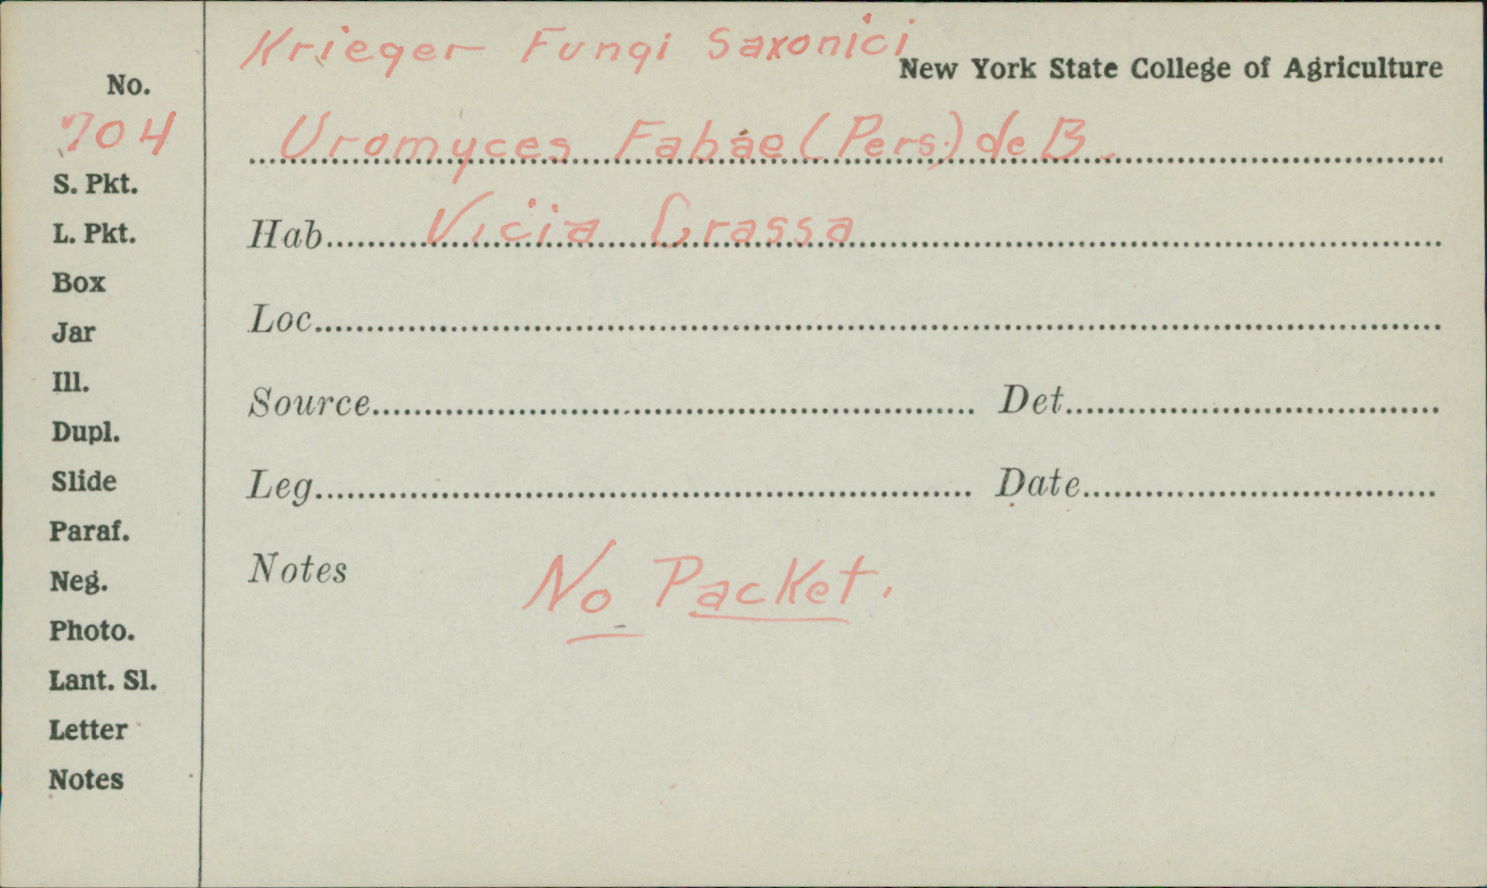 Krieger Fungi Saxonici
New York State College of Agriculture
No.
704
Uromyces Fabae (Pers.) de B.
S. Pkt.
L. Pkt.
Hab. Vicia Crassa
Box
Jar
Loc.
Ill.
Dupl.
Source Det.
Slide
Leg. Date
Paraf.
Neg.
Notes No Packet.
Photo.
Lant. Sl.
Letter
Notes